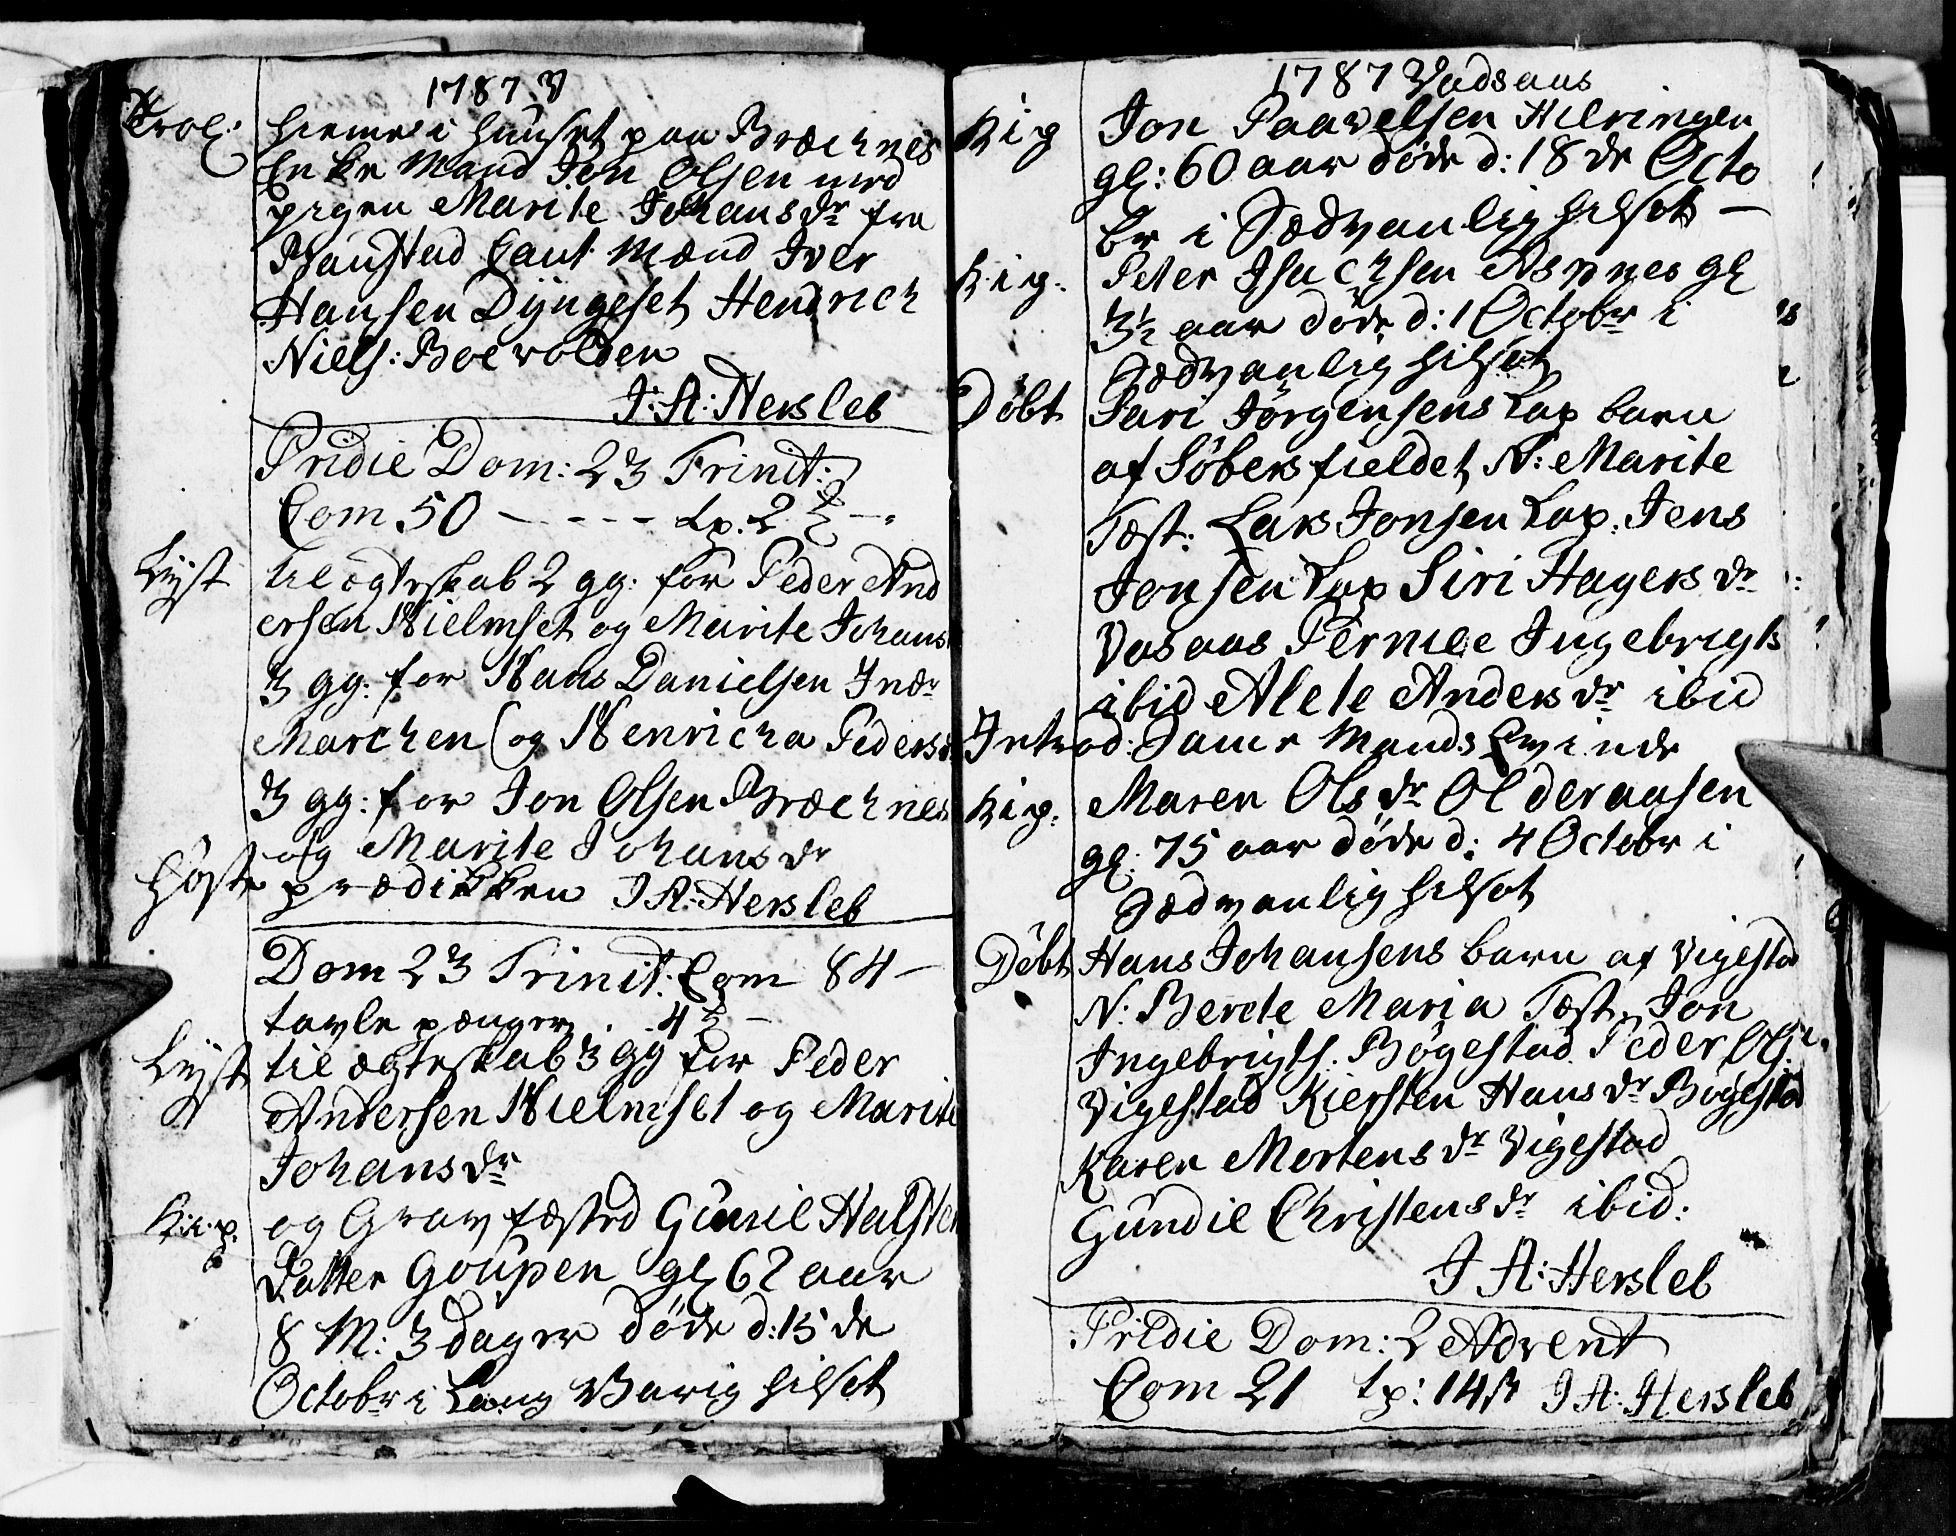 1787 V
Trol: hiemme i Huuset paa Bræchnes
Enke Mand Jon Olsen med
pigen Marite Johans dr fra
Baustad Caut Mænd Iver
Hansen Dyngeset Hendrich
Niels: Boevolden
J: A: Hersleb
Pridie Dom: 23 Trinit:
Com 50 - - - - - Lp. 2 ℥ -
Lyst til ægteskab 2 gg: for Peder And
ersen Hielmset og Marite Johans
3 gg: for Hans Danielsen Indr
Marchen og Henricha Peders
3 gg: for Jon Olsen Bræchnes
og Marite Johans dr
Høste prædikken J A: Hersleb
Dom 23 Trinit: Com 84 -
tavle pænger . 4 ℥ -
Lyst til ægteskab 3 gg for Peder
Andersen Hielmset og Marite
Johans dr
Lig. og Gravfæsted Guruil Halsten
Datter Goupen gl 62 aar
8 M: 3 dager døde d: 15 de
Octobr i Lang Varig hilset
1787 Vadsaas
Lig Jon Paavelsen Hilringen
gl: 60 aar døde d: 18 de Octo
br i Sædvanlig hilset -
Lig. Peter Isachsen Aspnes gl
3½ aar døde d: 1 Octobr i
Sædvanlig hilset
Døbt Pari Jørgensens Lap barn
af Søbersfieldet N: Marite
Tæst: Lars Jonsen Lap. Jens
Jonsen Lap Siri Hagers dr
Vasaas Pernile Ingebrigts
ibid Alete Anders dr ibid
Introd: Samme Mands Qvinde
Lig. Maren Ols dr Olderaasen
gl: 75 aar døde d: 4 Octobr i
Sædvanlig hilset
Døbt Hans Johansens barn af Vigestad
N: Berete Maria Tæst. Jon
Ingebrigts. Bøgestad Peder Ols:
Vigestad Kiersten Hans dr Bøgestad
Karen Mortens dr Vigestad
Gundil Christens dr ibid:
J A: Hersleb
Pridie Dom: 2 Advent
Com 21 tp: 14 ß J A: Hersleb